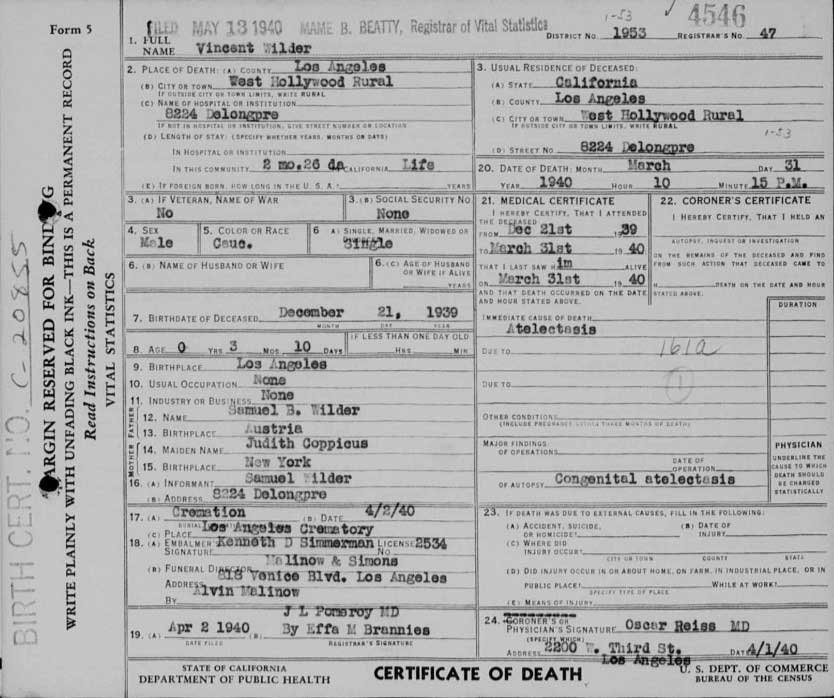 Form 5
FILED MAY 13 1940 MAME B. BEATTY, Registrar of Vital Statistics
1-53
4546
DISTRICT NO. 1953 REGISTRAR'S NO. 47
1. FULL NAME Vincent Wilder
2. PLACE OF DEATH: (A) COUNTY Los Angeles
(B) CITY OR TOWN West Hollywood Rural
IF OUTSIDE CITY OR TOWN LIMITS, WRITE RURAL
(C) NAME OF HOSPITAL OR INSTITUTION
8224 Delongpre
IF NOT IN HOSPITAL OR INSTITUTION, GIVE STREET NUMBER OR LOCATION
(D) LENGTH OF STAY: (SPECIFY WHETHER YEARS, MONTHS OR DAYS)
IN HOSPITAL OR INSTITUTION
IN THIS COMMUNITY 2 mo.26 da CALIFORNIA Life
(E) IF FOREIGN BORN, HOW LONG IN THE U. S. A.? YEARS
3. USUAL RESIDENCE OF DECEASED:
(A) STATE California
(B) COUNTY Los Angeles
(C) CITY OR TOWN West Hollywood Rural
IF OUTSIDE CITY OR TOWN LIMITS, WRITE RURAL
1-53
(D) STREET NO. 8224 Delongpre
20. DATE OF DEATH: MONTH March DAY 31
YEAR 1940 HOUR 10 MINUTE 15 P.M.
3. (A) IF VETERAN, NAME OF WAR
No
3. (B) SOCIAL SECURITY NO.
None
4. SEX
Male
5. COLOR OR RACE
Cauc.
6 A) SINGLE, MARRIED, WIDOWED OR
Single
6. (B) NAME OF HUSBAND OR WIFE
6. (C) AGE OF HUSBAND OR WIFE IF ALIVE
YEARS
7. BIRTHDATE OF DECEASED December 21, 1939
MONTH DAY YEAR
8. AGE 0 YRS 3 MOS 10 DAYS
IF LESS THAN ONE DAY OLD
HRS MIN
9. BIRTHPLACE Los Angeles
10. USUAL OCCUPATION None
11. INDUSTRY OR BUSINESS None
FATHER
12. NAME Samuel B. Wilder
13. BIRTHPLACE Austria
MOTHER
14. MAIDEN NAME Judith Coppicus
15. BIRTHPLACE New York
16. (A) INFORMANT Samuel Wilder
(B) ADDRESS 8224 Delongpre
17. (A) Cremation (B) DATE 4/2/40
BURIAL
(C) PLACE Los Angeles Crematory
18. (A) EMBALMER'S SIGNATURE Kenneth D Simmerman LICENSE NO. 2534
(B) FUNERAL DIRECTOR Malinow & Simons
ADDRESS 818 Venice Blvd. Los Angeles
BY Alvin Malinow
J L Pomeroy MD
19. (A) Apr 2 1940 (B) By Effa M Brannies
DATE FILED REGISTRAR'S SIGNATURE
21. MEDICAL CERTIFICATE
I HEREBY CERTIFY, THAT I ATTENDED
THE DECEASED
FROM Dec 21st 1939
TO March 31st 1940
THAT I LAST SAW H im ALIVE
ON March 31st 1940
AND THAT DEATH OCCURRED ON THE DATE
AND HOUR STATED ABOVE.
22. CORONER'S CERTIFICATE
I HEREBY CERTIFY, THAT I HELD AN
AUTOPSY, INQUEST OR INVESTIGATION
ON THE REMAINS OF THE DECEASED AND FIND
FROM SUCH ACTION THAT DECEASED CAME TO
H DEATH ON THE DATE AND HOUR
STATED ABOVE.
DURATION
IMMEDIATE CAUSE OF DEATH
Atelectasis
DUE TO 161a
DUE TO 1
OTHER CONDITIONS
(INCLUDE PREGNANCY WITHIN THREE MONTHS OF DEATH)
MAJOR FINDINGS
OF OPERATIONS
DATE OF
OPERATION
OF AUTOPSY Congenital atelectasis
PHYSICIAN
UNDERLINE THE
CAUSE TO WHICH
DEATH SHOULD
BE CHARGED
STATISTICALLY
23. IF DEATH WAS DUE TO EXTERNAL CAUSES, FILL IN THE FOLLOWING:
(A) ACCIDENT, SUICIDE, OR HOMICIDE?
(B) DATE OF INJURY
(C) WHERE DID
INJURY OCCUR?
CITY OR TOWN COUNTY STATE
(D) DID INJURY OCCUR IN OR ABOUT HOME, ON FARM, IN INDUSTRIAL PLACE, OR IN
PUBLIC PLACE? WHILE AT WORK?
SPECIFY TYPE OF PLACE
(E) MEANS OF INJURY
24. CORONER'S OR
PHYSICIAN'S SIGNATURE Oscar Reiss MD
(SPECIFY WHICH)
ADDRESS 2200 W. Third St. DATE 4/1/40
Los Angeles
STATE OF CALIFORNIA
DEPARTMENT OF PUBLIC HEALTH
CERTIFICATE OF DEATH
U. S. DEPT. OF COMMERCE
BUREAU OF THE CENSUS
BIRTH CERT. NO. C-20855
MARGIN RESERVED FOR BINDING
WRITE PLAINLY WITH UNFADING BLACK INK—THIS IS A PERMANENT RECORD
Read Instructions on Back
VITAL STATISTICS